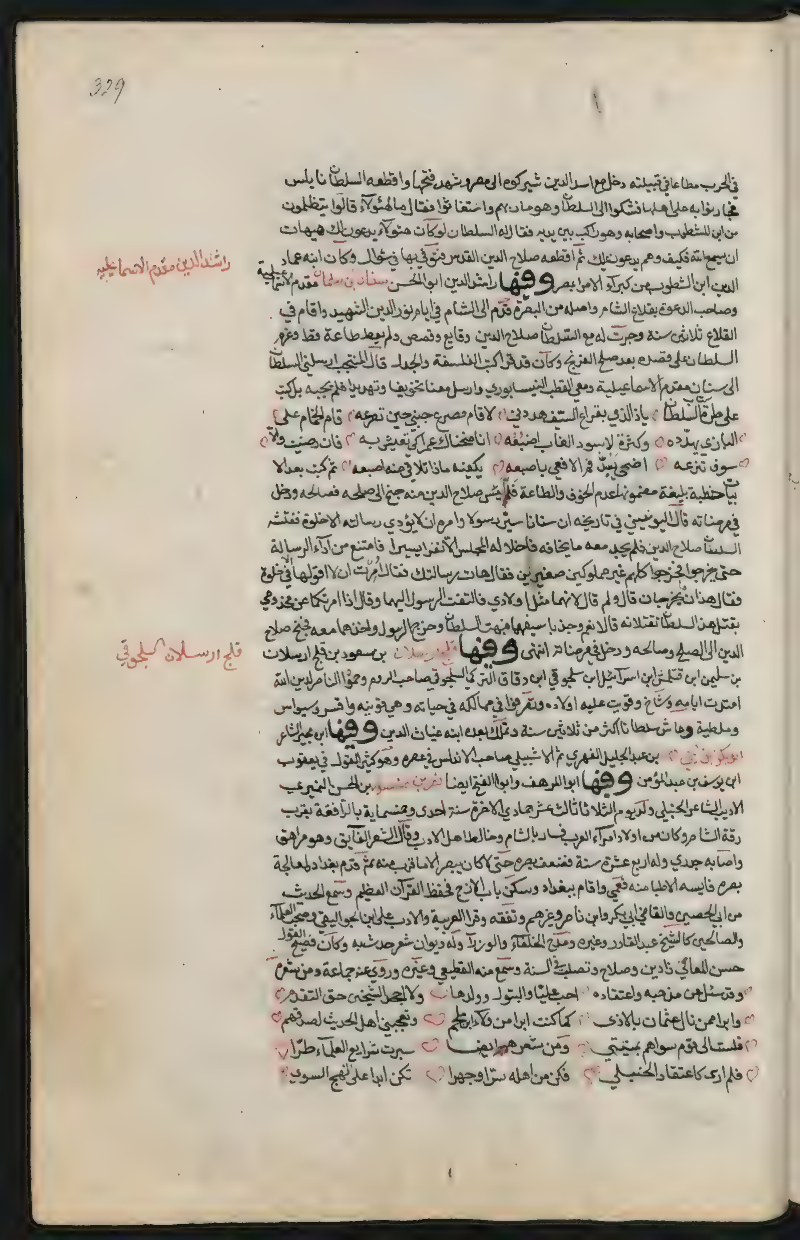 329
في الحرب مطاعا في قبيلته دخل مع اسد الدين شيركوه الى مصر وشهد فتحها واقطعه السلطان نابلس
فجار نوابه على اهلها فشكوا الى السلطان وهو مار بهم واستغاثوا فقال ما لهؤلاء قالوا يتظلمون
من ابن المشطوب واصحابه وهو راكب بين يديه فقال له السلطان لو كان هؤلاء يدعون لك هيهات
ان يسمع الله فكيف وهم يدعون عليك ثم اقطعه صلاح الدين القدس فتوفي بها في شوال وكان ابنه عماد
الدين ابن المشطوب من كبراء الامرا بمصر وفيها راشد الدين ابو الحسن سنان بن سلمان مقدم الاسماعيلية
راشد الدين مقدم الاسماعيليه
وصاحب الدعوة بقلاع الشام واصله من البصرة قدم الى الشام في ايام نور الدين الشهيد واقام في
القلاع ثلاثين سنة وجرت له مع السلطان صلاح الدين وقايع وقصص ولم يعط طاعة قط وعزم
السلطان على قصده بعد صلح الفرنج وكان قد قرا كتب الفلسفة والجدل قال المنتجب ارسلني السلطان
الى سنان مقدم الاسماعيلية ومعي القطب النيسابوري وارسل معنا تخويفا وتهديدا فلم يجبه بل كتب
على طرة كتاب السلطان يا ذا الذي بقراع السيف هددني لا قام مصرع جنبي حين تصرعه قام الحمام على
البازي يهدده وكشرة لاسود الغاب اضبعه انا منحناك عمرا كي تعيش به فان رضيت والا
سوف ننزعه اضحى يسد فم الافعى باصبعه يكفيه ماذا تلاقي منه اصبعه ثم كتب بعد الا
بيات خطبة بليغة مضمونها عدم الخوف والطاعة فلم يئس صلاح الدين منه جنح الى صلحه فصالحه ودخل
في مرضاته قال اليونيني في تاريخه ان سنانا سير رسولا وامره ان لا يؤدي رسالته الا خلوة ففتشه
السلطان صلاح الدين فلم يجد معه ما يخافه فاخلا له المجلس الا نفرا يسيرا فامتنع من آداء الرسالة
حتى يخرجوا فخرجوا كلهم غير مملوكين صغيرين فقال هات رسالتك فقال امرت ان لا اقولها الا في خلوة
فقال هذان ما يخرجان قال ولم قال لانهما مثل اولادي فالتفت الرسول اليهما وقال اذا امرتكما عن مخدومي
بقتل هذا السلطان تقتلانه قالا نعم وجذبا سيفهما فبهت السلطان وخرج الرسول واخذهما معه فجنح صلاح
الدين الى الصلح وصالحه ودخل في مرضاته انتهى وفيها قلج ارسلان بن مسعود بن قلج ارسلان
قلج ارسلان السلجوقي
بن سليمن ابن قتلمش ابن اسرائيل ابن سلجوق ابن دقاق التركي السلجوقي صاحب الروم وحمو الناصر لدين الله
امتدت ايامه وشاخ وقويت عليه اولاده وتصرفوا في ممالكه في حياته وهي قونيه واقسر وسيواس
وملطية وعاش سلطانا اكثر من ثلاثين سنة وتملك بعده ابنه غياث الدين وفيها ابن مجبر الشاعر
ابو بكر بن يحيى بن عبد الجليل الفهري ثم الاشبيلي صاحب الاندلس في عصره وهو كثير القول في يعقوب
ابن يوسف بن عبد المؤمن وفيها ابو المرهف وابو الفتح ايضا نصر بن منصور بن الحسن النميري
الاديب الشاعر الحنبلي ولد يوم الثلاثا ثالث عشر جمادى الاخرة سنة احدى وخمسماية بالرافقة بقرب
رقة الشام وكان من اولاد امراء العرب فساد بالشام وخالط اهل الادب وقال الشعر الفايق وهو مراهق
واصابه جدري وله اربع عشرة سنة فضعف بصره حتى لا كان يبصر الا ما قرب منه ثم قدم بغداد لمعالجة
بصره فايسه الاطبا منه فعمي واقام ببغداد وسكن باب الازج فحفظ القرآن العظيم وسمع الحديث
من ابن الحصين والقاضي ابي بكر وابن ناصر وغيرهم وتفقه وقرا العربية والادب على ابن الجواليقي وصحب العلماء
والصالحين كالشيخ عبد القادر وغيره ومدح الخلفاء والوزراء وله ديوان شعر حدث به وكان فصيح القول
حسن المعاني ذا دين وصلاح وتصلب في السنة وسمع منه القطيعي وغيره وروى عنه جماعة ومن شعره
وقد سئل عن مذهبه واعتقاده احب عليا والبتول وولدها ولا اجحد الشيخين حق التقدم
وابرا ممن نال عثمان بالاذى كما كنت ابرا من ولاء ابن ملجم وتعجبني اهل الحديث لصدقهم
فلست الى قوم سواهم بمنتمي ومن شعره ايضا سبرت شرايع العلماء طرا
فلم ار كاعتقاد الحنبلي فكن من اهله سرا وجهرا تكن ابدا على النهج السوي